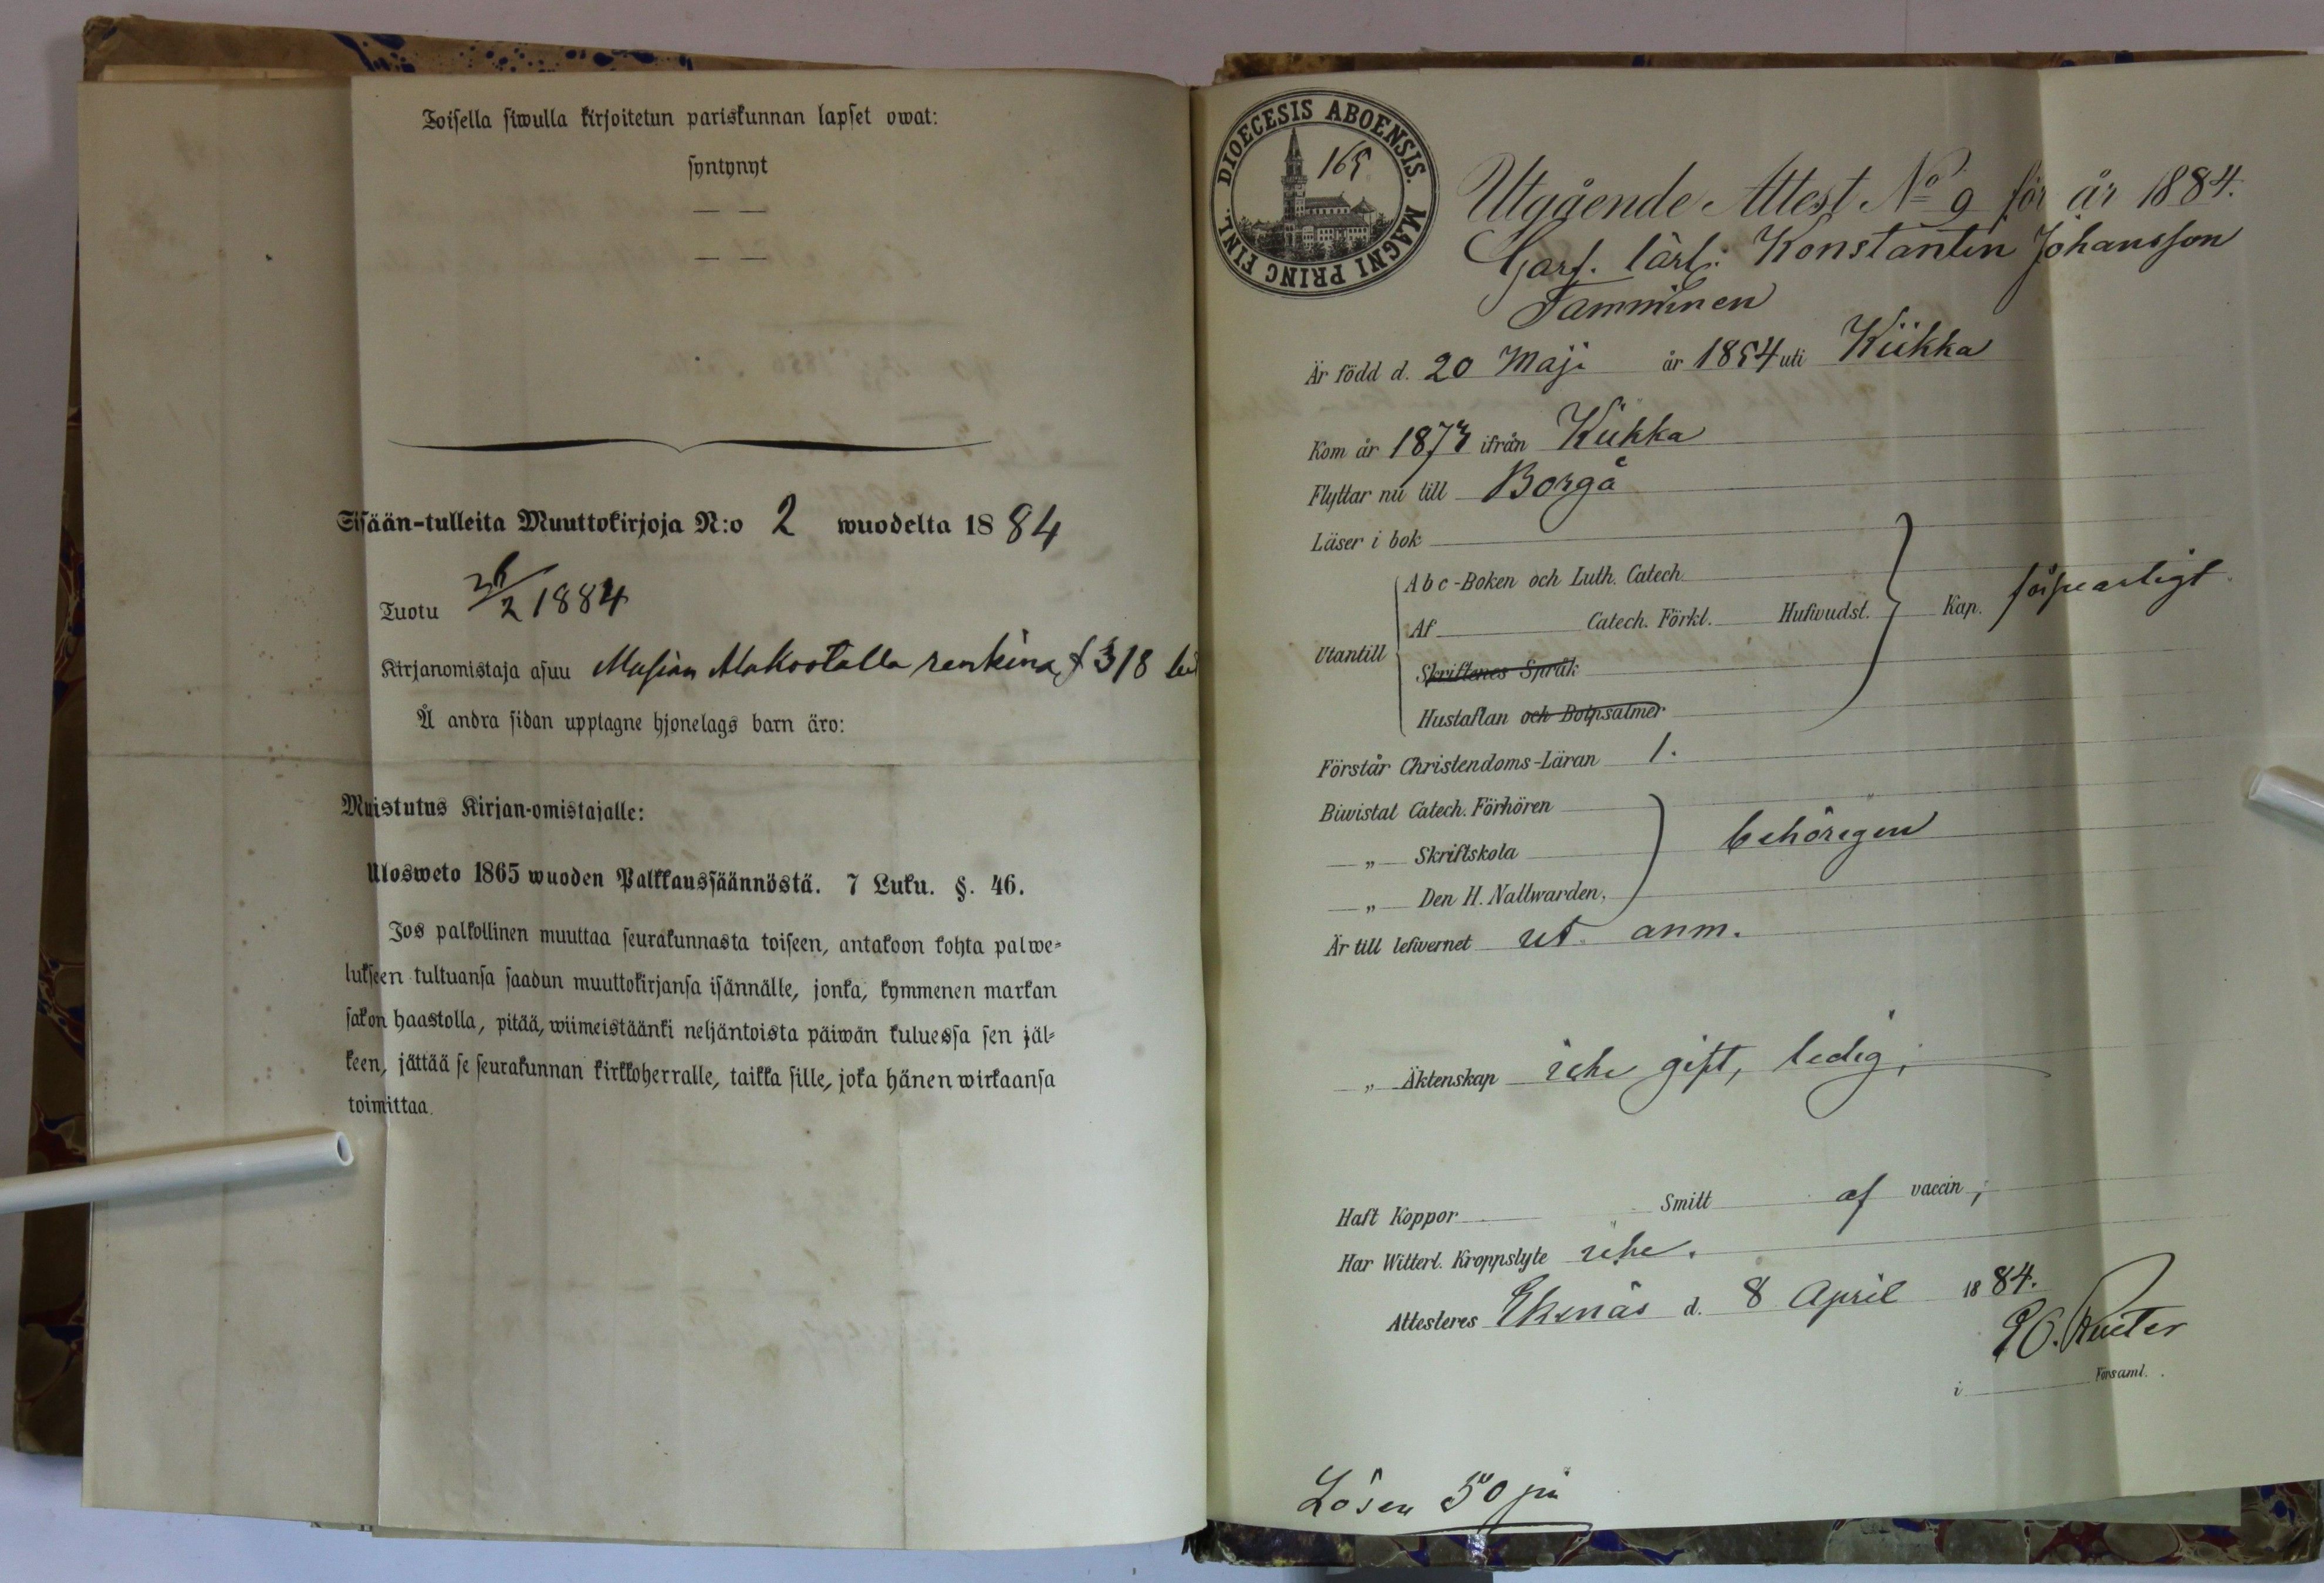 Toisella siwulla kirjoitetun pariskunnan lapset owat:
syntynyt
— —
— —
Sisään-tulleita Muuttokirjoja N:o 2 wuodelta 1884
Tuotu 26/2 1884
Kirjanomistaja asuu Alakootalla renkinä 318
Å andra sidan upptagne hjonelags barn äro:
Muistutus Kirjan-omistajalle:
Ulosweto 1865 wuoden Palkkaussäännöstä. 7 Luku. §. 46.
Jos palkollinen muuttaa seurakunnasta toiseen, antakoon kohta palwe-
lukseen tultuansa saadun muuttokirjansa isännälle, jonka, kymmenen markan
sakon haastolla, pitää, wiimeistäänki neljäntoista päiwän kuluessa sen jäl-
keen, jättää se seurakunnan kirkkoherralle, taikka sille, joka hänen wirkaansa
toimittaa.
DIOECESIS ABOENSIS. MAGNI PRINC FINL.
165
Utgående Attest No 9 för år 1884.
Garf. lärl. Konstantin Johansson
Tamminen
Är född d. 20 Maji år 1854 uti Kiikka
Kom år 1873 ifrån Kiikka
Flyttar nu till Borgå
Läser i bok
Abc-Boken och Luth. Catech.
Utantill Af Catech. Förkl. Hufwudst. Kap. försvarligt
Skriftenes Språk
Hustaflan och Botpsalmer
Förstår Christendoms-Läran 1.
Biwistat Catech. Förhören
— „ — Skriftskola behörigen
— „ — Den H. Nattwarden,
Är till lefwernet ut. anm.
— „ Äktenskap icke gift, ledig;
Haft Koppor Smitt af vaccin;
Har Witterl. Kroppslyte icke.
Attesteres Ekenäs d. 8 April 1884.
Reuter
i Församl.
Lösen 50 pi